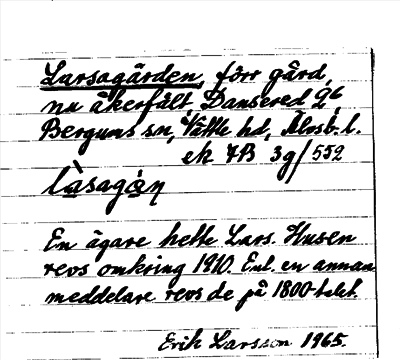 Larsagården, förr gård,
nu åkerfält, Dansered 2⁶,
Bergums sn, Vättle hd, Älvsb. l.
ek 7B 3g/552
làsagḁ̀ṇ
En ägare hette Lars. Husen
revs omkring 1910. Enl. en annan
meddelare revs de på 1800-talet.
Erik Larsson 1965.